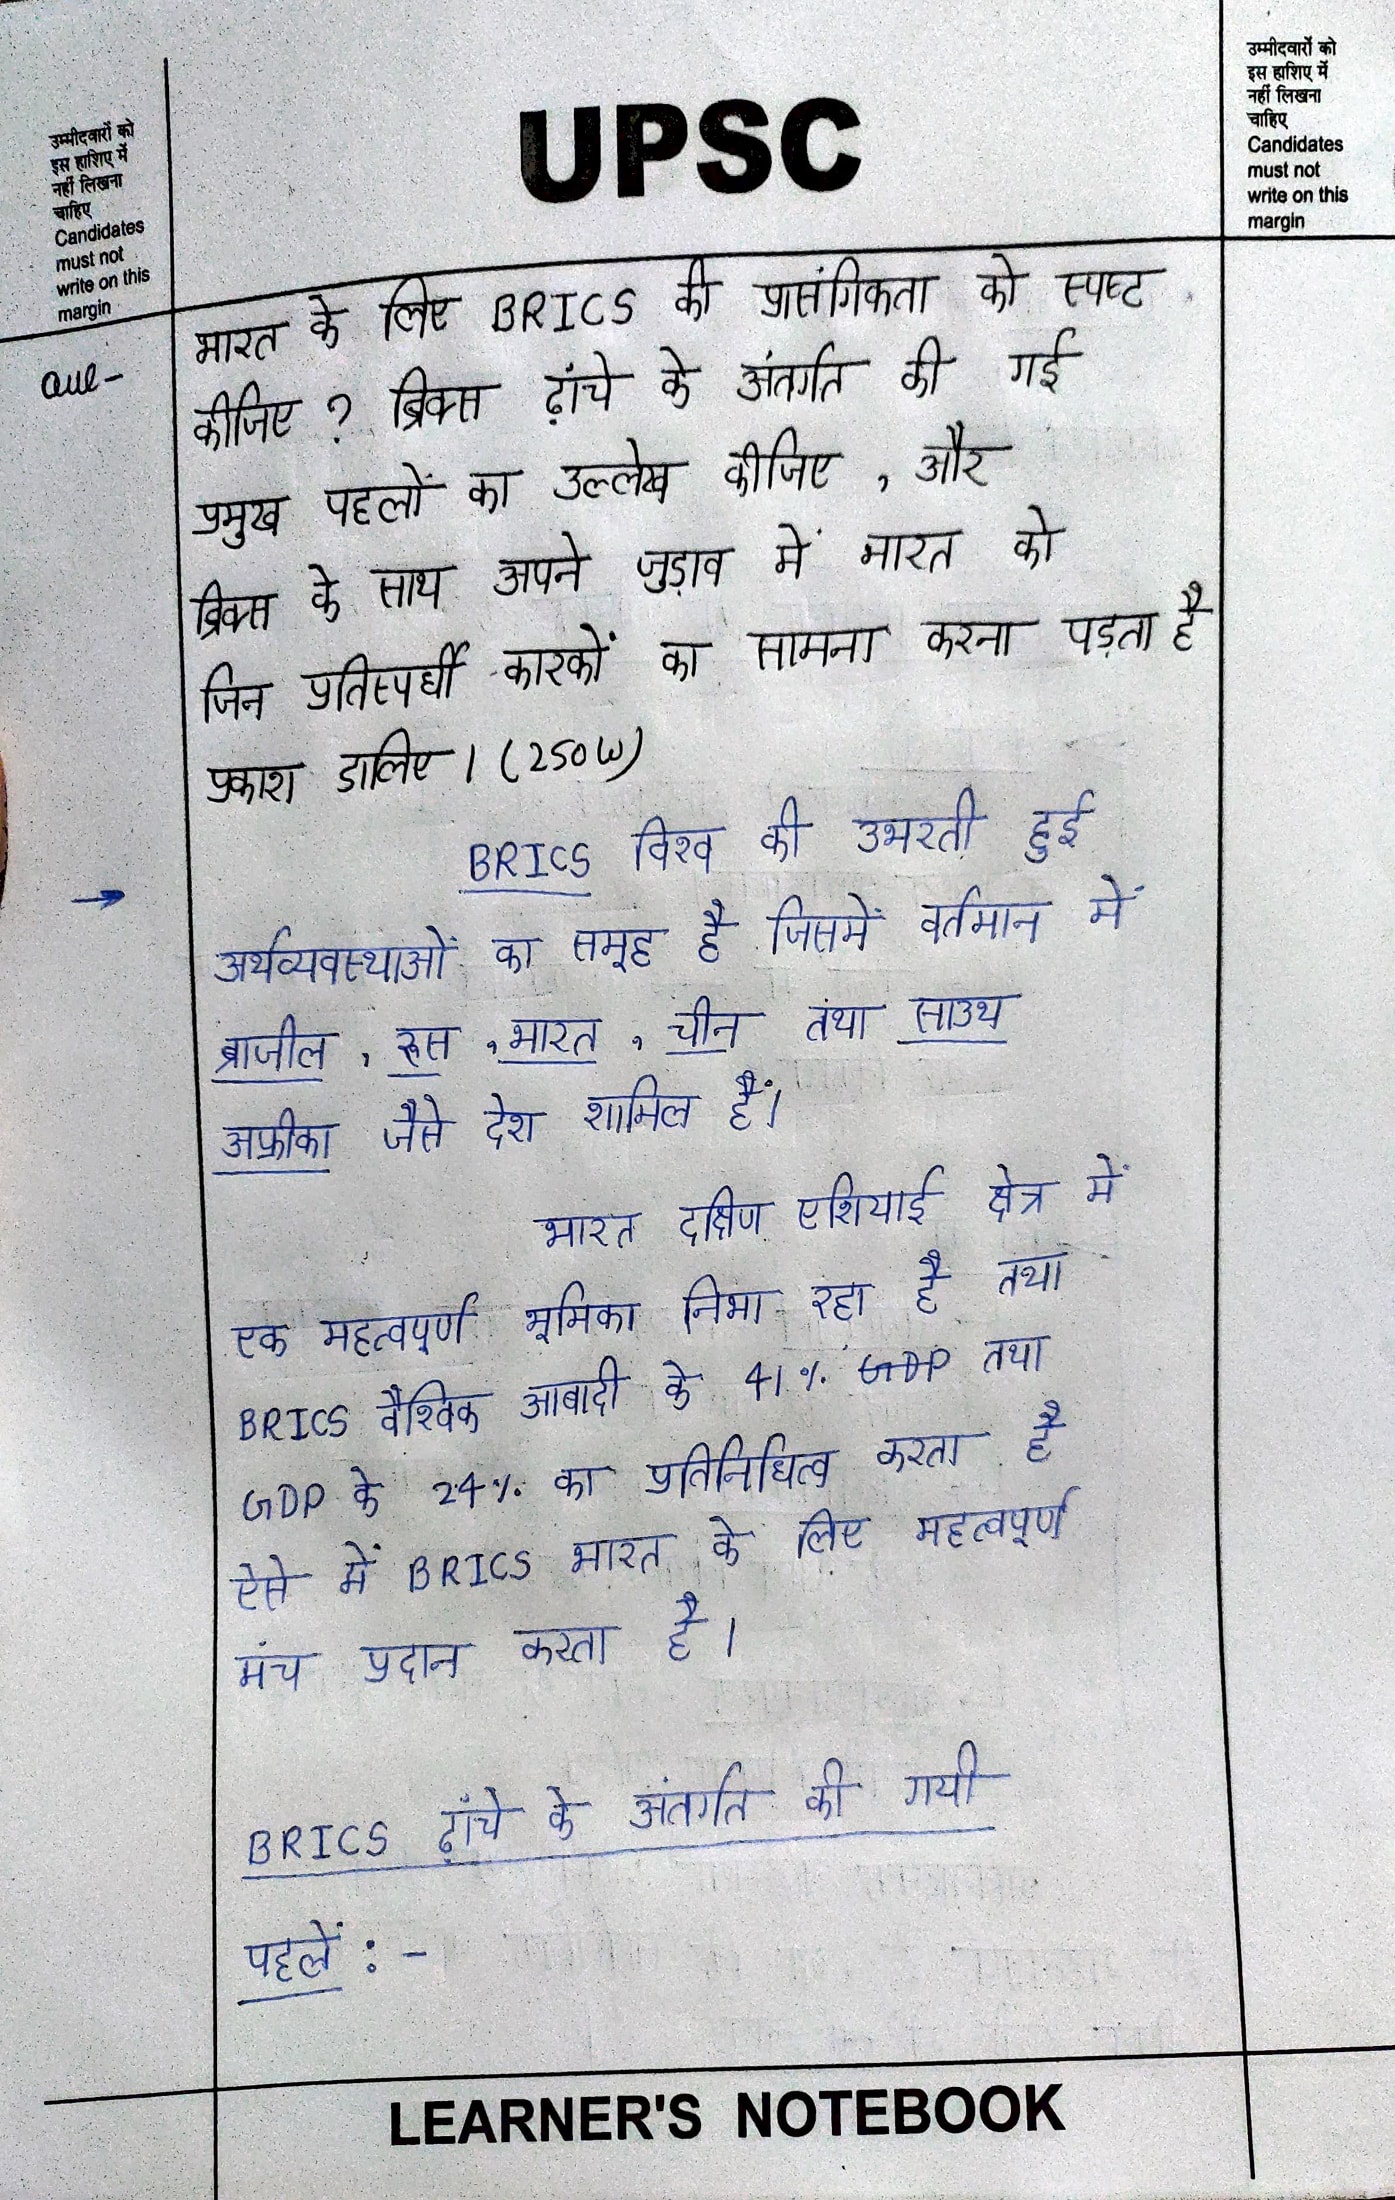 उम्मीदवारों को
इस हाशिए में
नहीं लिखना
चाहिए
Candidates
must not
write on this
margin
UPSC
उम्मीदवारों को
इस हाशिए में
नहीं लिखना
चाहिए
Candidates
must not
write on this
margin
भारत के लिए BRICS की प्रासंगिकता को स्पष्ट
कीजिए ? ब्रिक्स ढ़ांचे के अंतर्गत की गई
प्रमुख पहलों का उल्लेख कीजिए , और
ब्रिक्स के साथ अपने जुड़ाव में भारत को
जिन प्रतिस्पर्धी कारकों का सामना करना पड़ता है
प्रकाश डालिए । (250W)
→ BRICS विश्व की उभरती हुई
अर्थव्यवस्थाओं का समूह है जिसमें वर्तमान में
ब्राजील , रूस , भारत , चीन तथा साउथ
अफ्रीका जैसे देश शामिल हैं।
भारत दक्षिण एशियाई क्षेत्र में
एक महत्वपूर्ण भूमिका निभा रहा है तथा
BRICS वैश्विक आबादी के 41% GDP तथा
GDP के 24% का प्रतिनिधित्व करता है
ऐसे में BRICS भारत के लिए महत्वपूर्ण
मंच प्रदान करता है ।
BRICS ढ़ांचे के अंतर्गत की गयी
पहलें : -
LEARNER'S NOTEBOOK